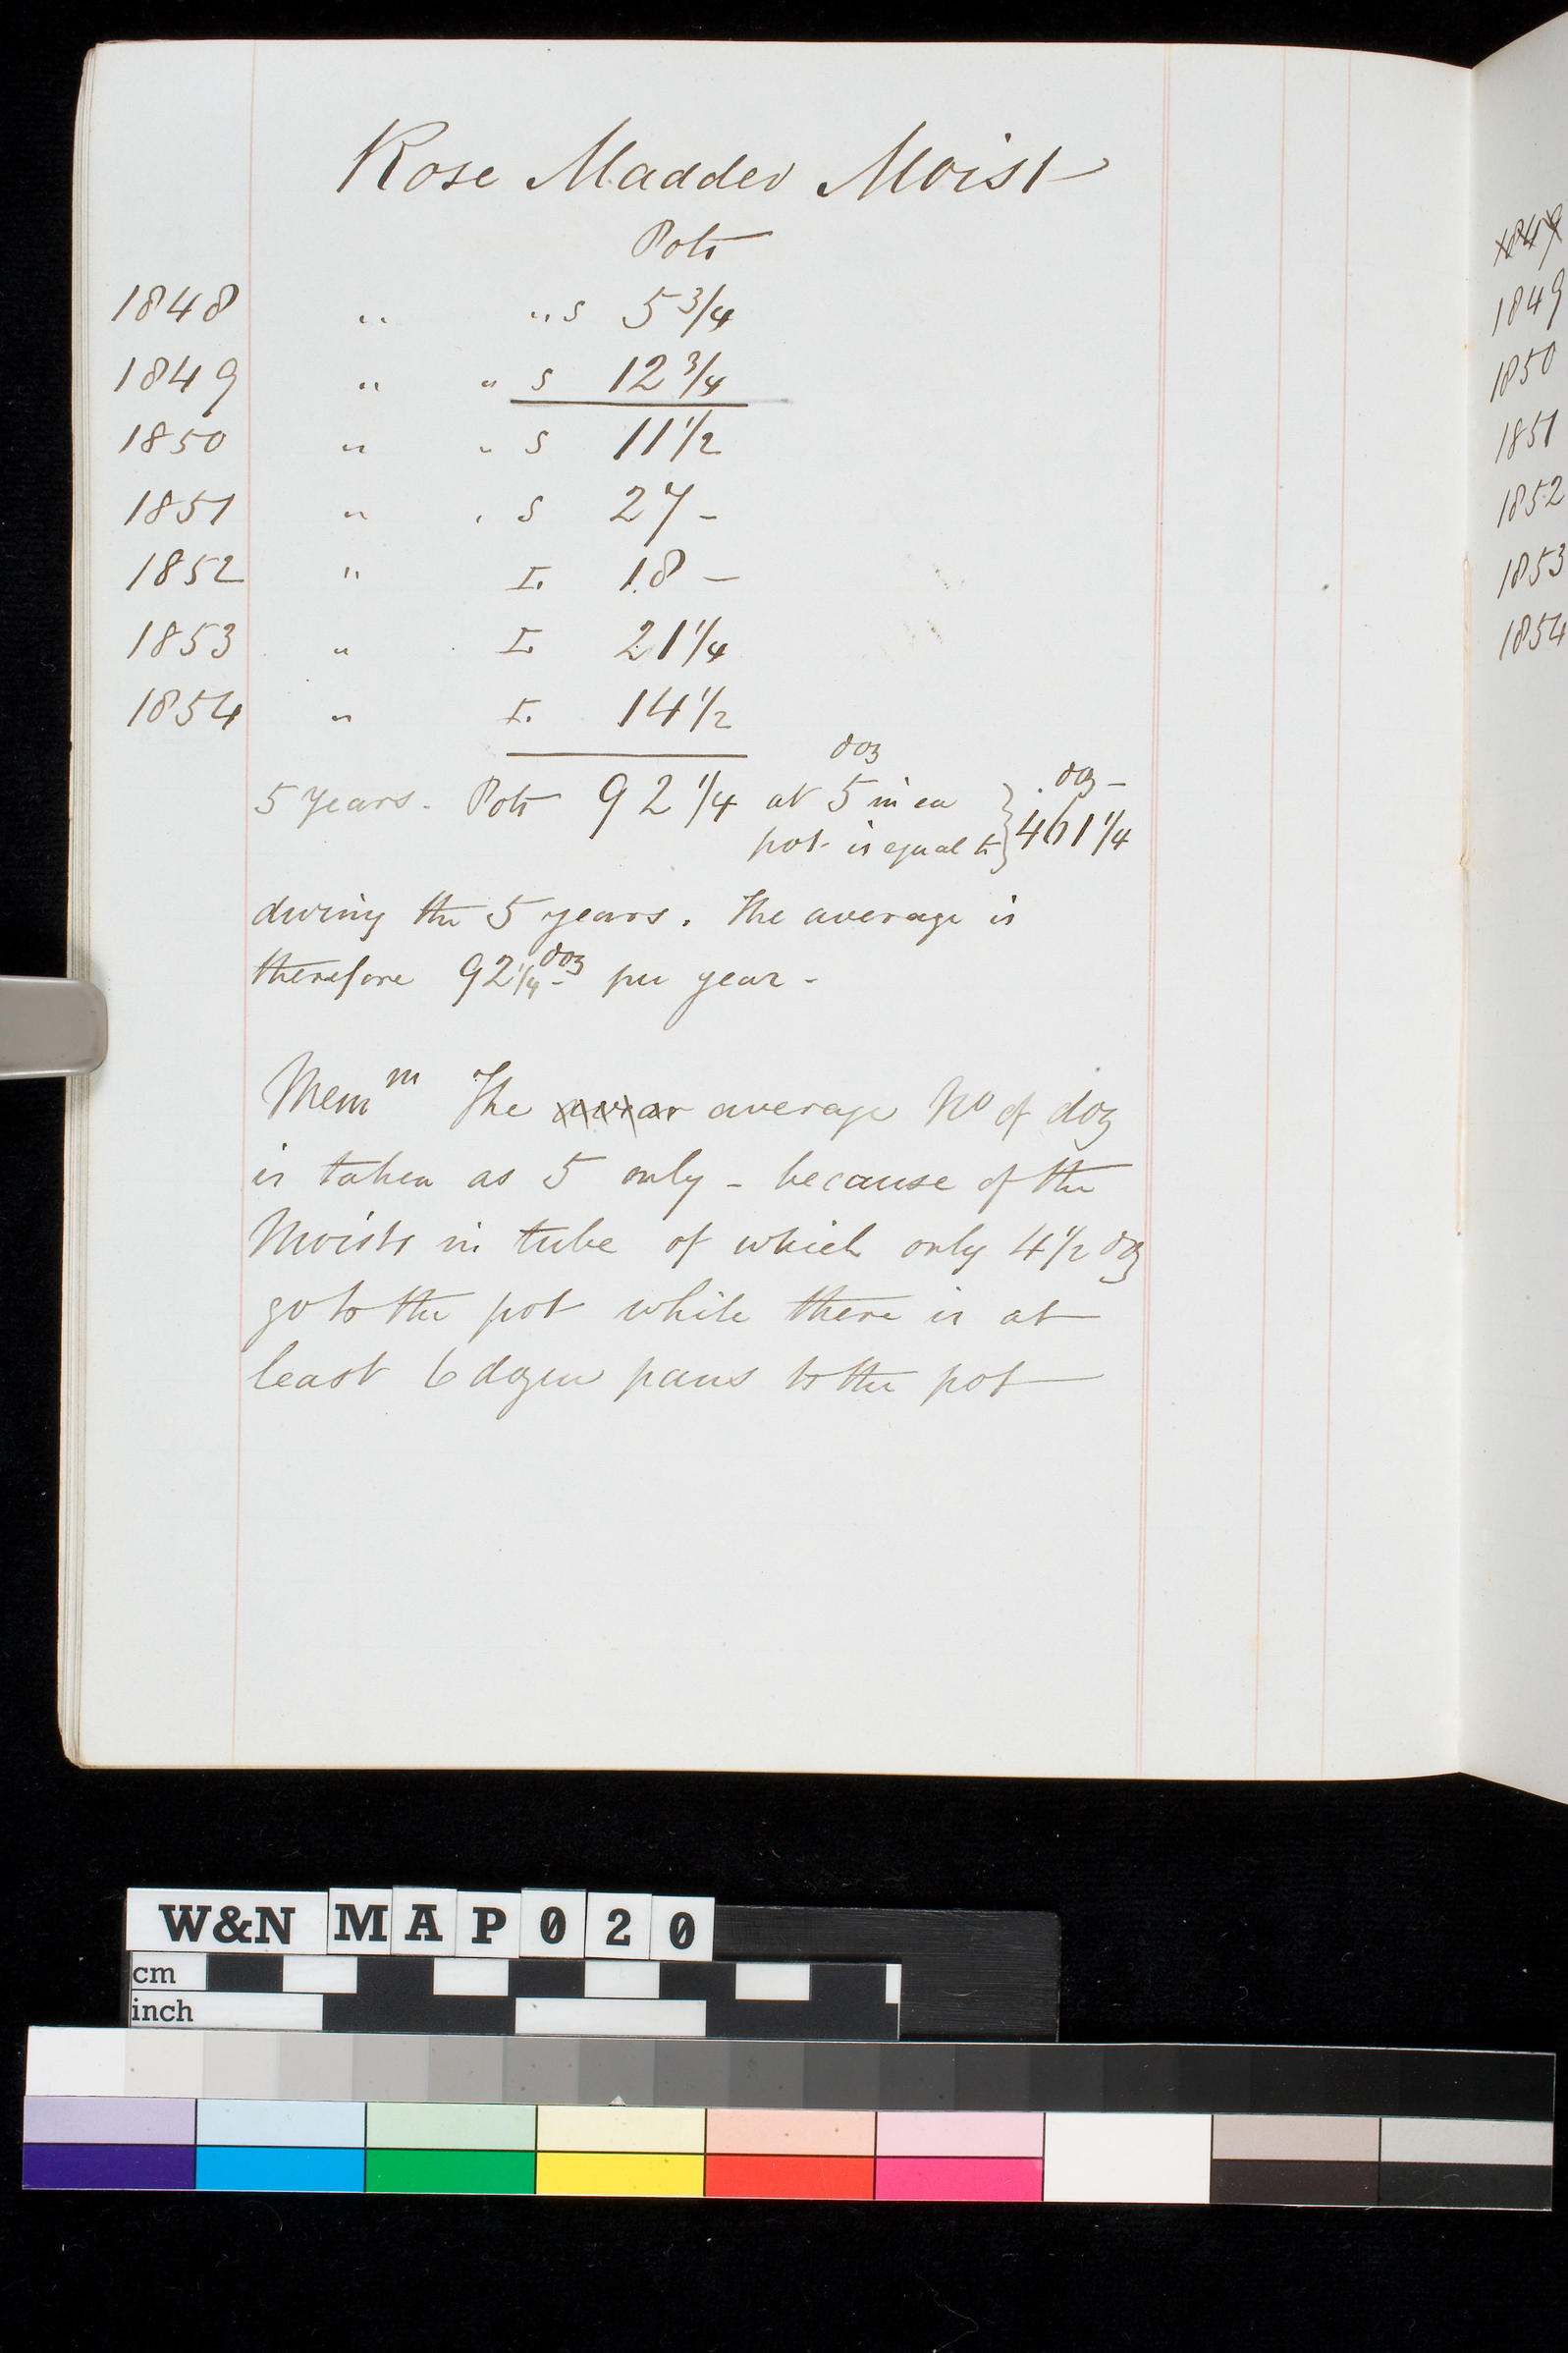 Rose Madder Moist
Pots
1848 " " S 5 3/4
1849 " " S 12 3/4
1850 " " S 11 1/2
1851 " " S 27 -
1852 " I. 18 -
1853 " I. 21 1/4
1854 " I. 14 1/2
doz
5 Years - Pots 92 1/4 at 5 in ea } doz -
pot is equal to } 461 1/4
during the 5 years. The average is
therefore 92 1/4 doz per year -
Mem m The average No of doz
is taken as 5 only - because of the
Moists in tube of which only 4 1/2 doz
go to the pot while there is at
least 6 dozen pans to the pot
1849
1849
1850
1851
1852
1853
1854
W&N MAP020
cm
inch